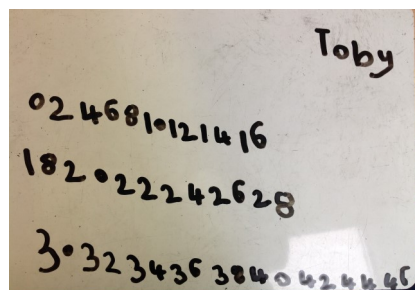 Toby
0246810121416
182022242628
303234363840424446